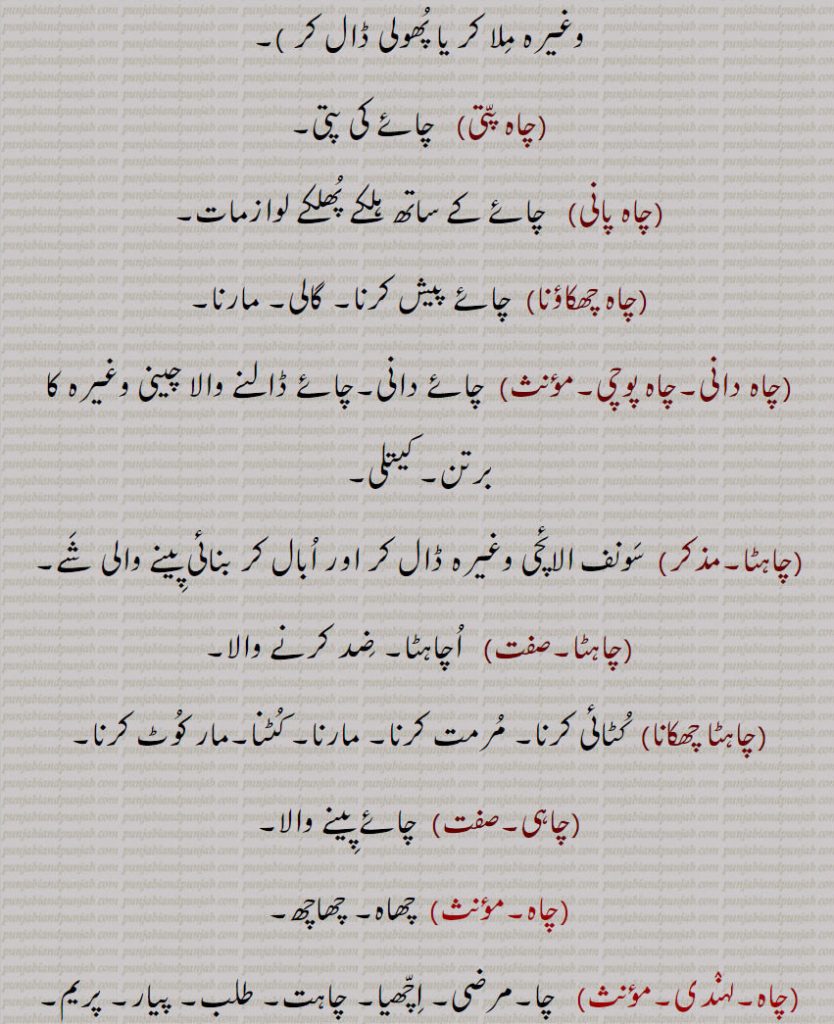 وغیرہ مِلا کر یا پُھولی ڈال کر )۔
(چاہ پتّی) چائے کی پتی۔
(چاہ پانی) چائے کے ساتھ ہلکے پُھلکے لوازمات۔
(چاہ چھکاؤنا) چائے پیش کرنا۔ گالی۔ مارنا۔
(چاہ دانی۔چاہ پوچی۔مؤنث) چائے دانی۔چائے ڈالنے والا چینی وغیرہ کا
برتن۔ کیتلی۔
(چاہٹا۔مذکر) سَونف الائچی وغیرہ ڈال کر اور اُبال کر بنائی پِینے والی شَے۔
(چاہٹا۔صفت) اُچاہٹا۔ ضِد کرنے والا۔
(چاہٹا چھکانا) کُٹائی کرنا۔ مُرمت کرنا۔ مارنا۔ کُٹنا۔مار کُوٹ کرنا۔
(چاہی۔صفت) چائے پِینے والا۔
(چاہ۔مؤنث) چھاہ۔ چھاچھ۔
(چاہ۔لہندی۔مؤنث) چا۔مرضی۔ اِچّھیا۔ چاہت۔ طلب۔ پیار۔ پریم۔
punjabiandpunjab.com